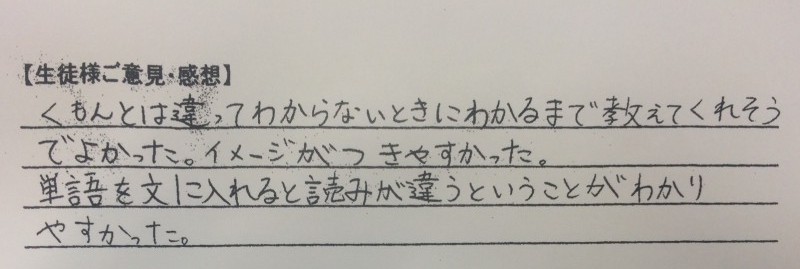 【生徒様ご意見・感想】
くもんとは違ってわからないときにわかるまで教えてくれそう
でよかった。イメージがつきやすかった。
単語を文に入れると読みが違うということがわかり
やすかった。